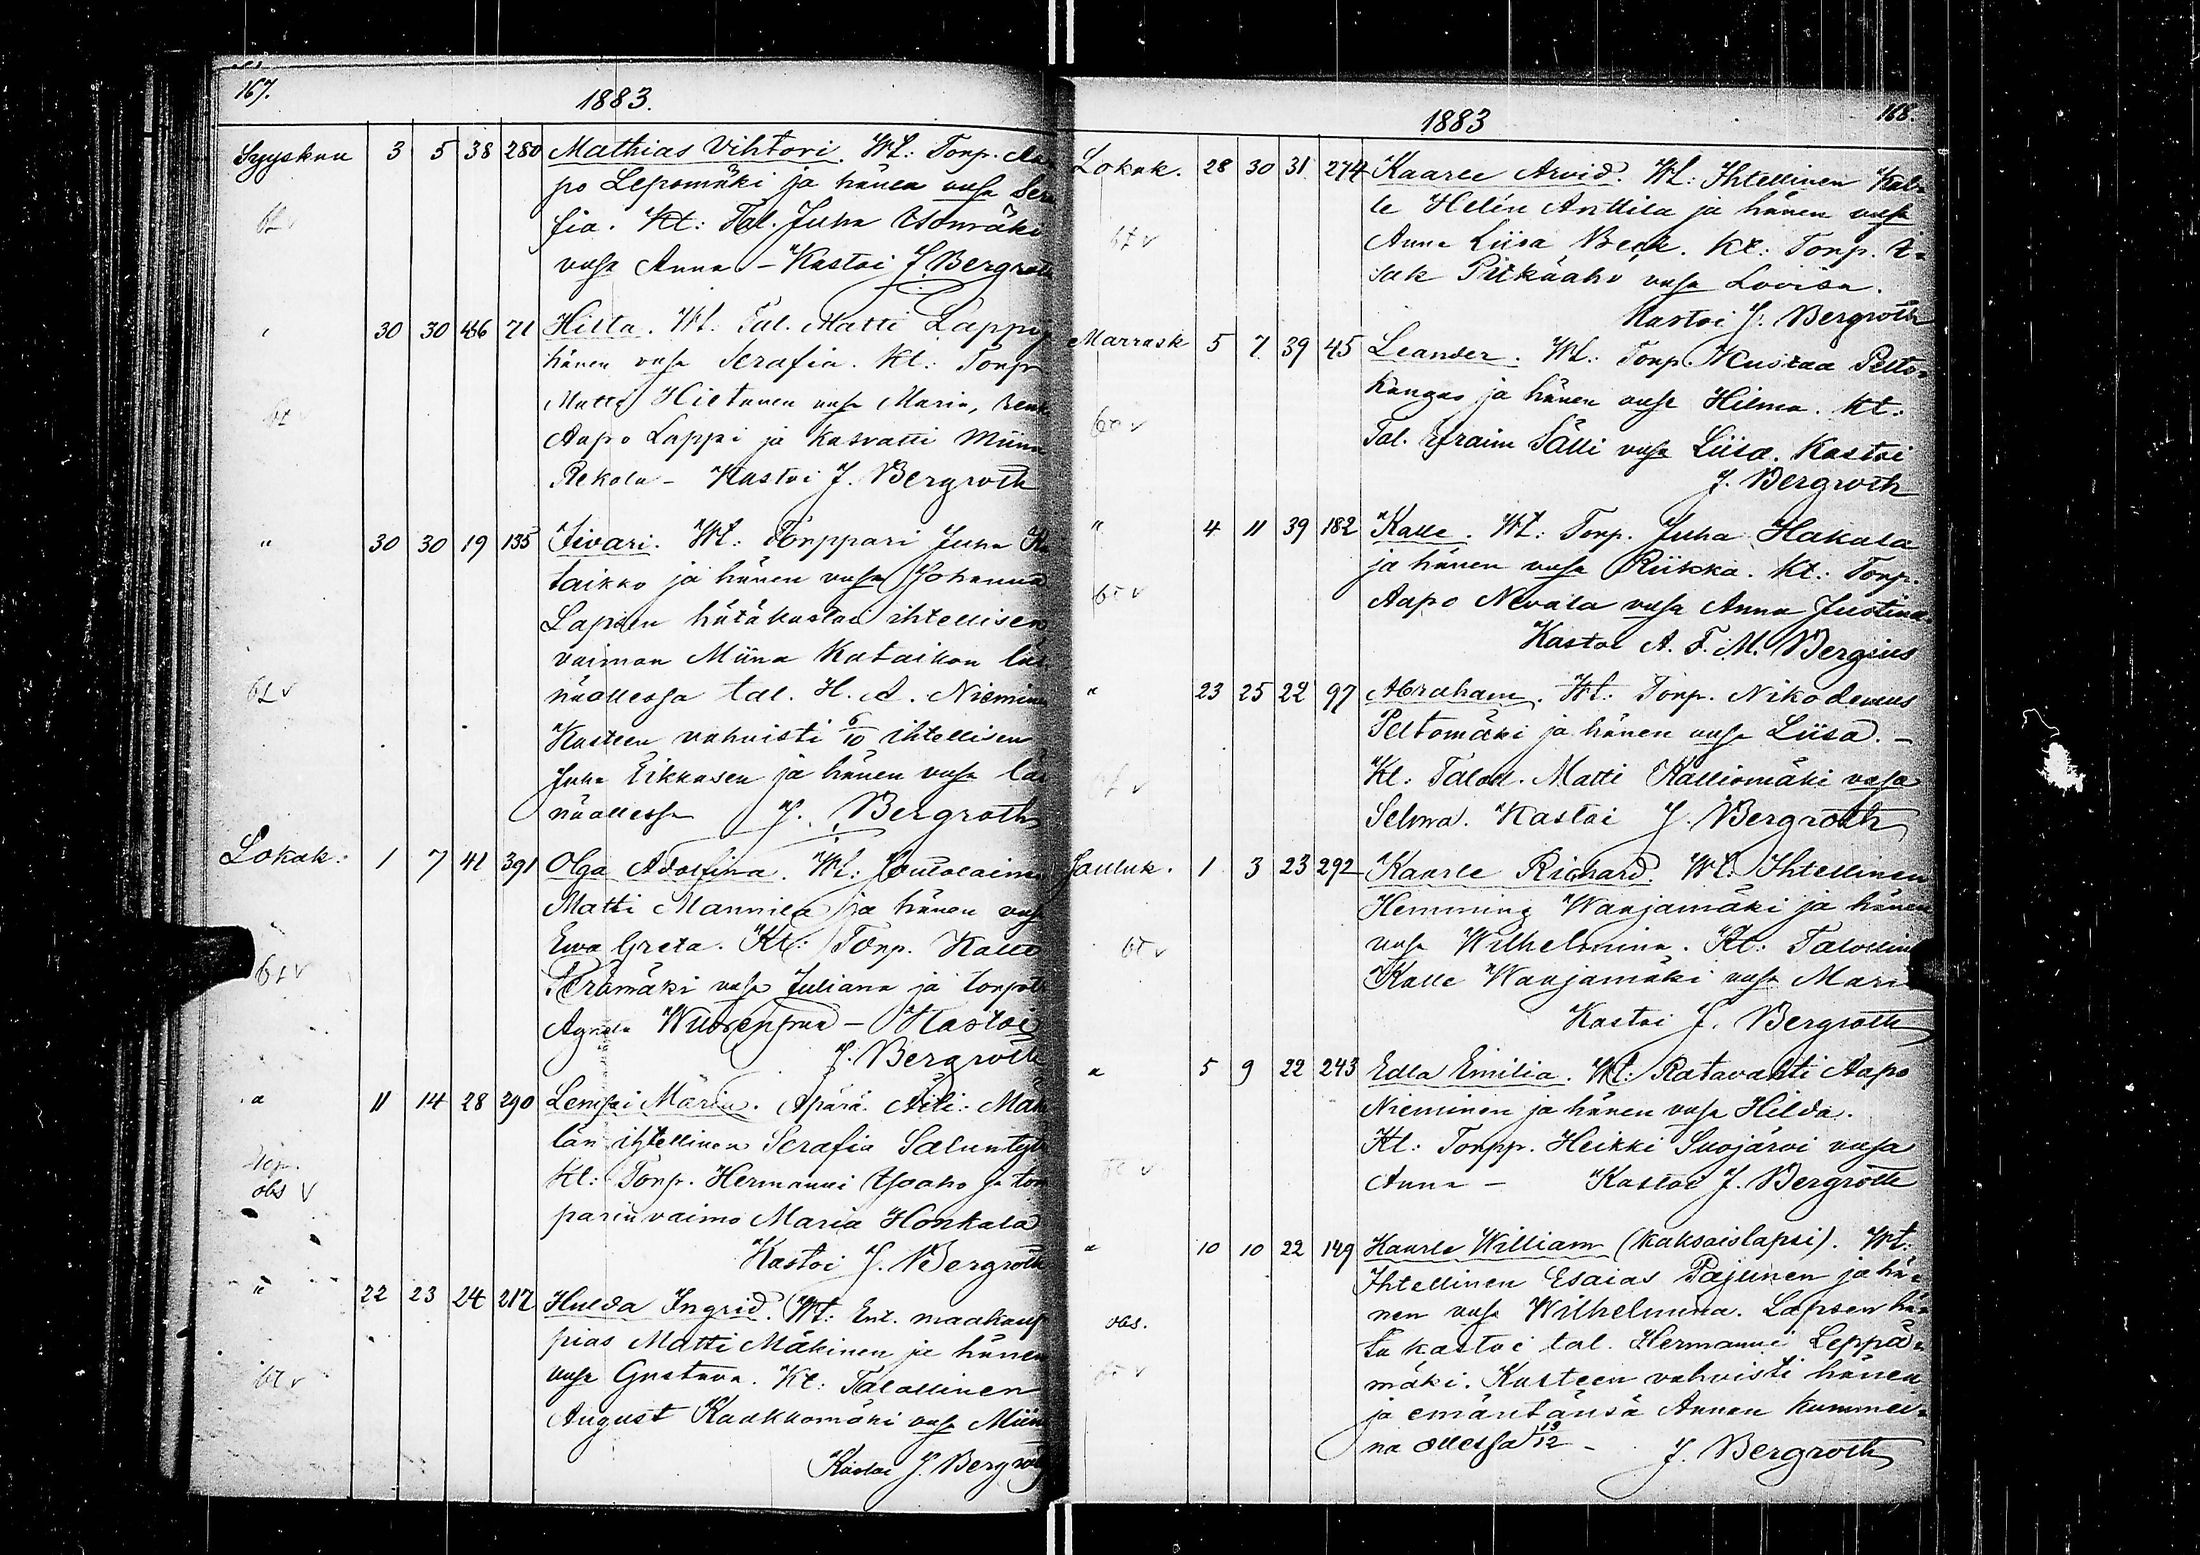 167.
1883.
Syyskuu 3 5 38 280 Mathias Vihtori. Wt: Torp. Aa
po Lepomäki ja hänen vaSa Sera
fia. Kt: Tal. Juha Isomäki
btv
vaSa Anna - Kastoi J. Bergroth
" 30 30 46 71 Hilta. Wt. Tal. Matti Lappi ja
hänen vaSa Serafia. Kt: Torp
Matti Hietanen vaSa Maria,
btv
Aapo Lappi ja kasvatti Miina
Rekola - Kastoi J. Bergroth
" 30 30 19 135 Iivari. Wt: Torppari Juha Ka
taikko ja hänen vaSa Johanna
Lapsen hätäkastoi ihtellisen
vaimon Miina Kataikon läs
btv
näollessa tal. H. A. Niemine
Kasteen vahvisti 6/10 ihtellisen
Juha Eikkasen ja hänen vaSa läs
näollessa J. Bergroth
Lokak: 1 7 41 391 Olga Adolfina. Wt: Joutolainen
Matti Mannila ja hänen vaSa
Ewa Greta. Kt: Torp. Kalle
btv
Perämäki vaSa Juliana ja torpp
- Kastoi
J. Bergroth
" 11 14 28 290 Lempi Maria. Äpärä. Äiti: Mäke
län ihtellinen Serafia
obs v
Kt: Torp. Hermanni Ysoaho ja tor
parin vaimo Maria Honkala
Kastoi J. Bergroth
" 22 23 24 217 Hulda Ingrid. Wt: Ent. maakaup
pias Matti Mäkinen ja hänen
btv
vaSa Gustava. Kt: Talollinen
August Kaakkomäki vaSa Miina
Kastoi J. Bergroth
168.
1883
Lokak. 28 30 31 274 Kaarle Arvid. Wt: Ihtellinen Kal-
le Helén Anttila ja hänen vaSa
btv
Anna Liisa Beck. Kt: Torp. I-
sak Pitkäaho vaSa Lovisa.
Kastoi J. Bergroth
Marrask 5 7 39 45 Leander. Wt: Torp. Kustaa Pelto-
kangas ja hänen vaSa Hilma. Kt:
btv
Tal. Efraim Sälli vaSa Liisa. Kastoi
J. Bergroth
" 4 11 39 182 Kalle. Wt: Torp. Juha Hakala
ja hänen vaSa Riikka. Kt: Torp.
btv
Aapo Nevala vaSa Anna Justina.
Kastoi A. F. M. Bergius
" 23 25 22 97 Abraham. Wt: Torp. Nikodemus
Peltomäki ja hänen vaSa Liisa. -
btv
Kt: Taloll. Matti Kalliomäki vaSa
Selma. Kastoi J. Bergroth
Jouluk. 1 3 23 292 Kaarle Richard. Wt: Ihtellinen
Hemming Wanjamäki ja hänen
btv
vaSa Wilhelmina. Kt: Talollin
Kalle Wanjamäki vaSa Maria
Kastoi J. Bergroth
" 5 9 22 243 Edla Emilia. Wt: Ratavahti Aapo
Nieminen ja hänen vaSa Hilda.
btv
Kt: Torpp. Heikki Suojärvi vaSa
Anna - Kastoi J. Bergroth
" 10 10 22 149 Kaarle William (kaksoislapsi). Wt:
Ihtellinen Esaias Pajunen ja hä-
nen vaSa Wilhelmina. Lapsen hä-
obs.
tä kastoi tal. Hermanni Leppä-
btv
mäki. Kasteen vahvisti hänen
ja emäntänsä Annan kummei-
na ollessa 13/12 - J. Bergroth